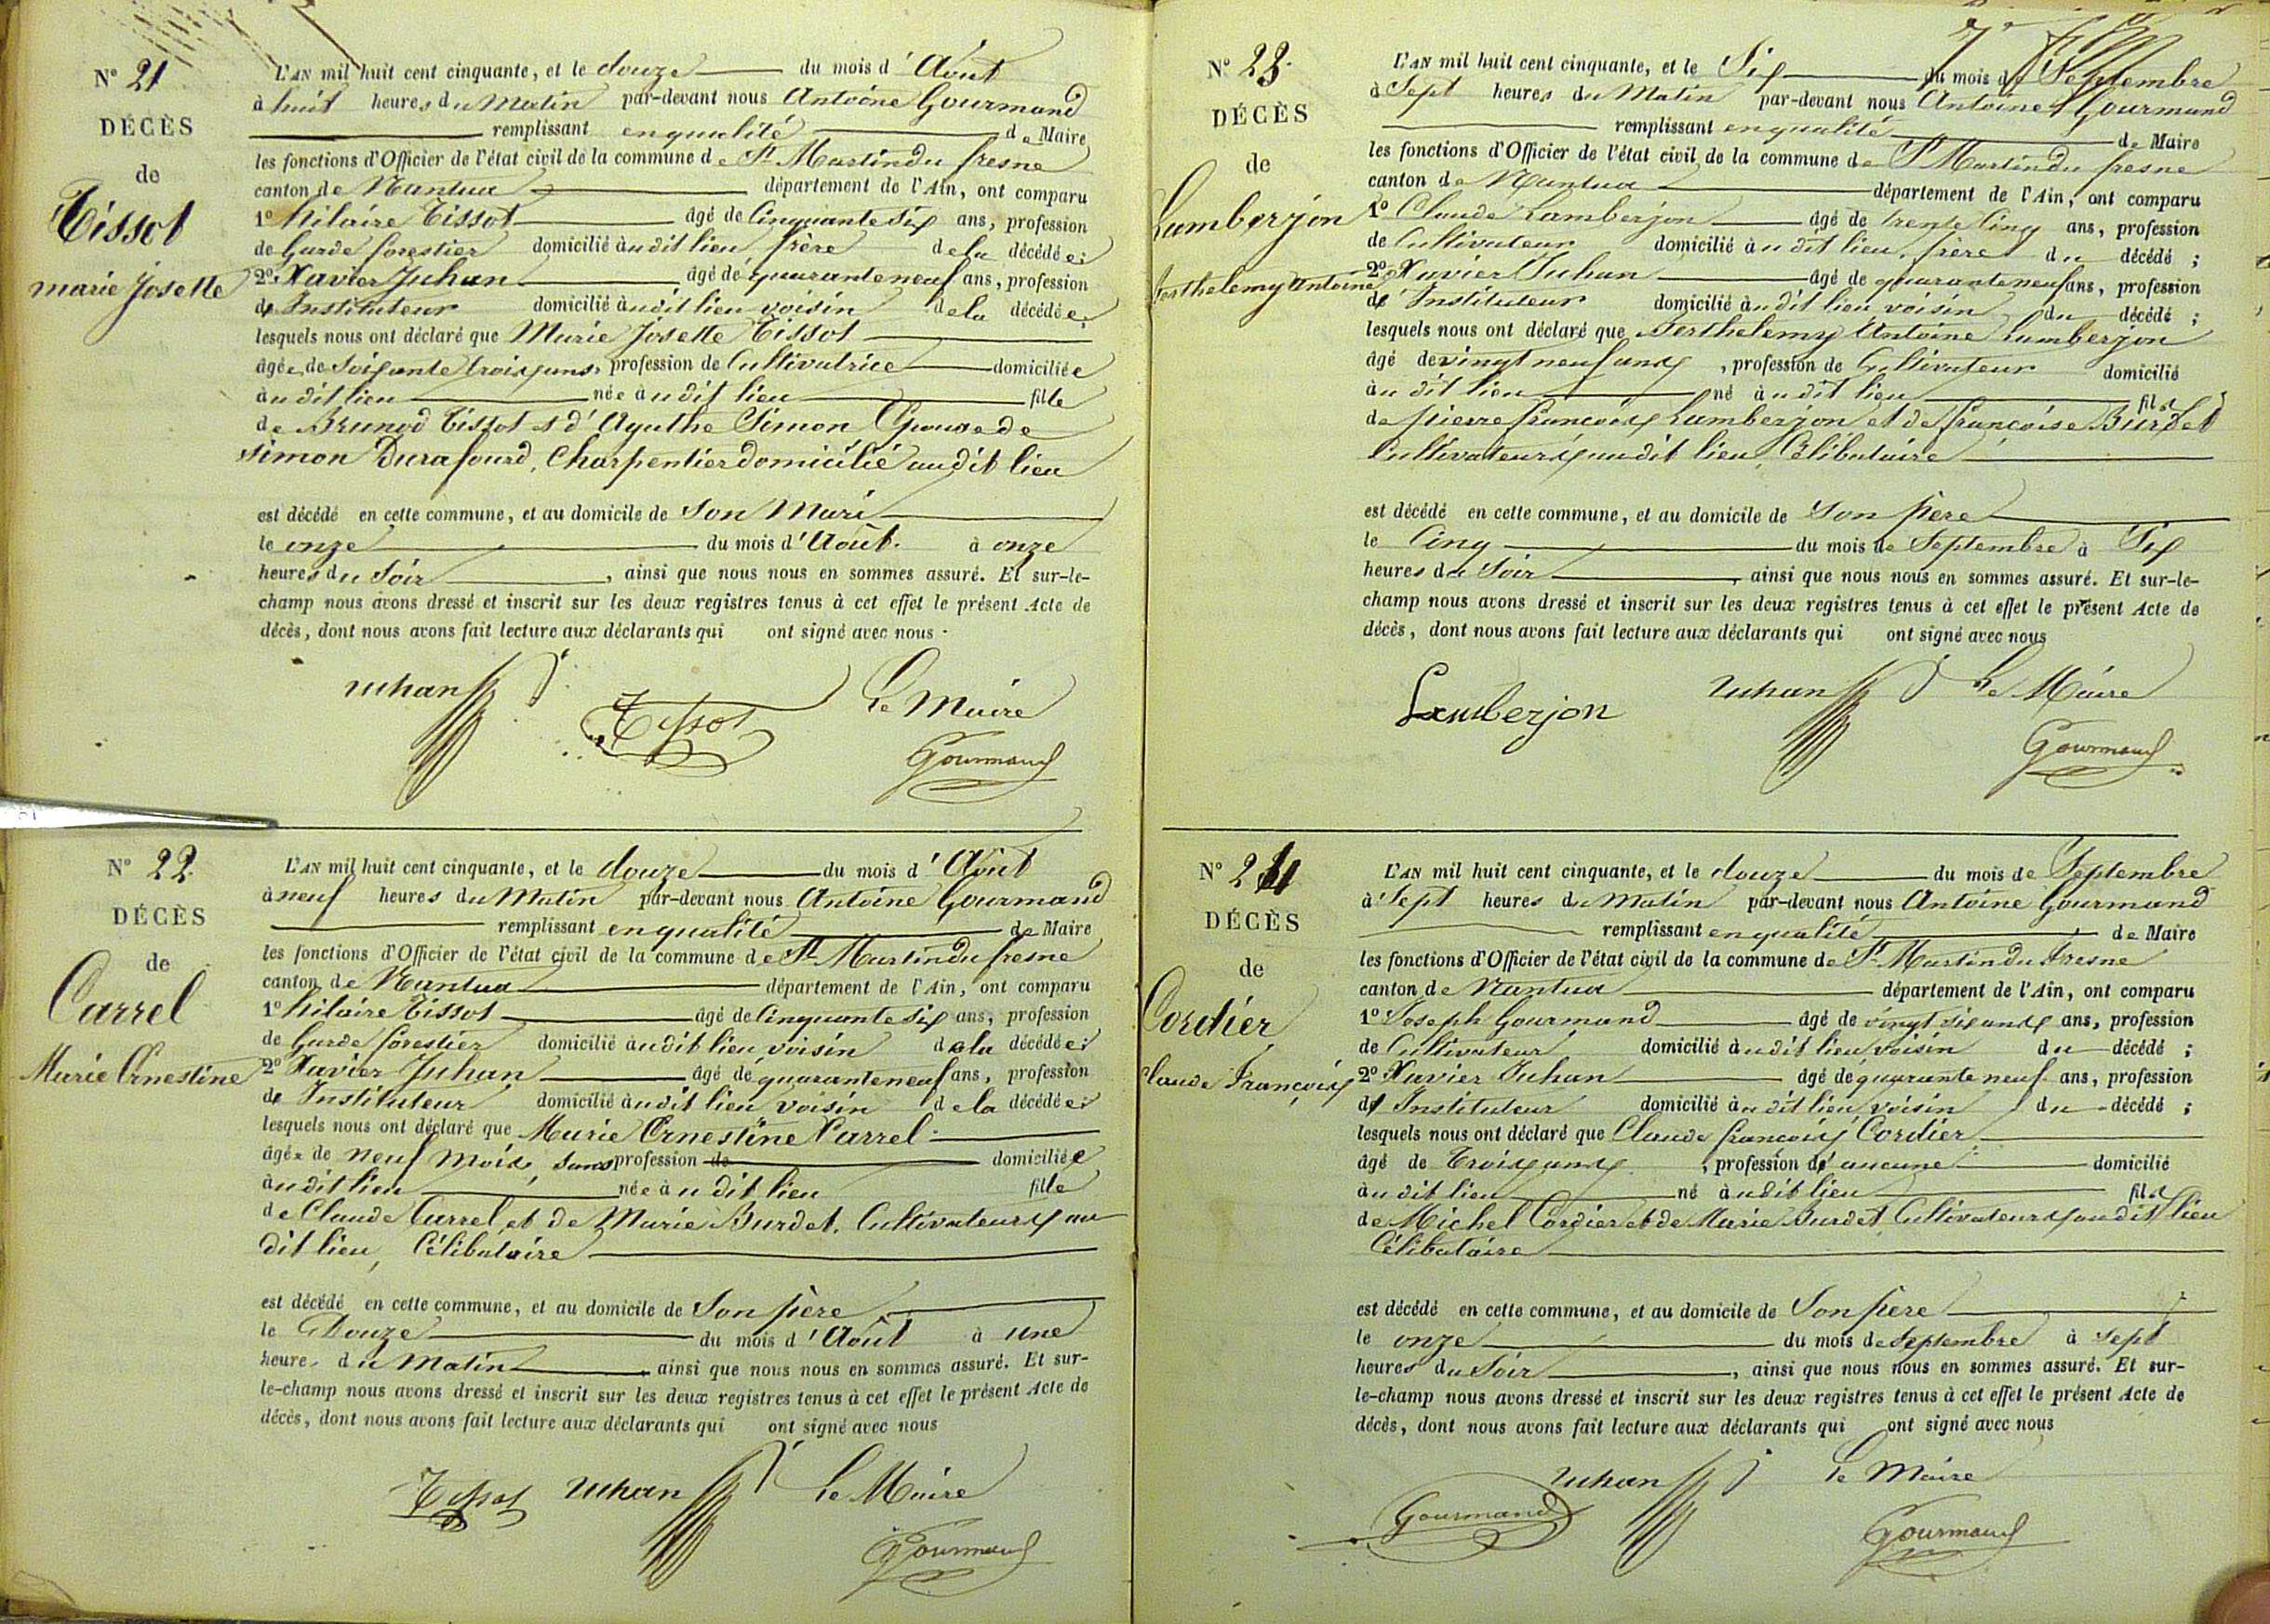 N° 21
DÉCÈS
de
Tissot
marie Josette
L'AN mil huit cent cinquante, et le douze du mois d' Août
à huit heures du Matin par-devant nous Antoine Gourmand
remplissant en qualité de Maire
les fonctions d'Officier de l'état civil de la commune de St Martin du fresne
canton de Nantua département de l'Ain, ont comparu
1° hilaire Tissot âgé de Cinquante Six ans, profession
de Garde forestier domicilié audit lieu frère de la décédée;
2° Xavier Juhan âgé de quarante neuf ans, profession
d' Instituteur domicilié audit lieu voisin de la décédée;
lesquels nous ont déclaré que Marie Josette Tissot
âgée de Soixante trois ans, profession de Cultivatrice domiciliée
audit lieu née audit lieu fille
de Brunod Tissot et d' Agathe Simon Epouse de
simon Durafourd, Charpentier domicilié audit lieu
est décédé en cette commune, et au domicile de Son Mari
le onze du mois d' Août. à onze
heures du Soir, ainsi que nous nous en sommes assuré. Et sur-le-
champ nous avons dressé et inscrit sur les deux registres tenus à cet effet le présent Acte de
décès, dont nous avons fait lecture aux déclarants qui ont signé avec nous.
Juhan Tissot Le Maire
Gourmand
N° 22
DÉCÈS
de
Carrel
Marie Ernestine
L'AN mil huit cent cinquante, et le douze du mois d' Août
à neuf heures du Matin par-devant nous Antoine Gourmand
remplissant en qualité de Maire
les fonctions d'Officier de l'état civil de la commune de St Martin du fresne
canton de Nantua département de l'Ain, ont comparu
1° hilaire Tissot âgé de Cinquante Six ans, profession
de Garde forestier domicilié audit lieu voisin de la décédée;
2° Xavier Juhan âgé de quarante neuf ans, profession
d' Instituteur domicilié audit lieu voisin de la décédée;
lesquels nous ont déclaré que Marie Ernestine Carrel
âgée de neuf mois, sans profession de domiciliée
audit lieu née audit lieu fille
de Claude Carrel et de Marie Burdet, Cultivateurs au
dit lieu, Célibataire
est décédé en cette commune, et au domicile de Son père
le Douze du mois d' Août à une
heure du Matin, ainsi que nous nous en sommes assuré. Et sur-
le-champ nous avons dressé et inscrit sur les deux registres tenus à cet effet le présent Acte de
décès, dont nous avons fait lecture aux déclarants qui ont signé avec nous
Tissot Juhan Le Maire
Gourmand
N° 23
DÉCÈS
de
Lamberjon
Berthelemy Antoine
L'AN mil huit cent cinquante, et le Six du mois de Septembre
à Sept heures du Matin par-devant nous Antoine Gourmand
remplissant en qualité de Maire
les fonctions d'Officier de l'état civil de la commune de St Martin du fresne
canton de Nantua département de l'Ain, ont comparu
1° Claude Lamberjon âgé de trente Cinq ans, profession
de Cultivateur domicilié audit lieu, frère du décédé;
2° Xavier Juhan âgé de quarante neuf ans, profession
d' Instituteur domicilié audit lieu voisin du décédé;
lesquels nous ont déclaré que Berthelemy Antoine Lamberjon
âgé de vingt neuf ans, profession de Cultivateur domicilié
audit lieu né audit lieu fils
de pierre françois Lamberjon et de françoise Burdet
Cultivateurs audit lieu, Célibataire
est décédé en cette commune, et au domicile de Son père
le Cinq du mois de Septembre à Six
heures du Soir, ainsi que nous nous en sommes assuré. Et sur-le-
champ nous avons dressé et inscrit sur les deux registres tenus à cet effet le présent Acte de
décès, dont nous avons fait lecture aux déclarants qui ont signé avec nous
Lamberjon Juhan Le Maire
Gourmand
N° 24
DÉCÈS
de
Cordier
Claude François
L'AN mil huit cent cinquante, et le douze du mois de Septembre
à Sept heures du Matin par-devant nous Antoine Gourmand
remplissant en qualité de Maire
les fonctions d'Officier de l'état civil de la commune de St Martin du Fresne
canton de Nantua département de l'Ain, ont comparu
1° Joseph Gourmand âgé de vingt six ans ans, profession
de Cultivateur domicilié audit lieu voisin du décédé;
2° Xavier Juhan âgé de quarante neuf ans, profession
d' Instituteur domicilié audit lieu voisin du décédé;
lesquels nous ont déclaré que Claude françois Cordier
âgé de Trois ans, profession d' aucune domicilié
audit lieu né audit lieu fils
de Michel Cordier et de Marie Burdet Cultivateurs audit lieu
Célibataire
est décédé en cette commune, et au domicile de Son père
le onze du mois de Septembre à sept
heures du Soir, ainsi que nous nous en sommes assuré. Et sur-
le-champ nous avons dressé et inscrit sur les deux registres tenus à cet effet le présent Acte de
décès, dont nous avons fait lecture aux déclarants qui ont signé avec nous
Gourmand Juhan Le Maire
Gourmand